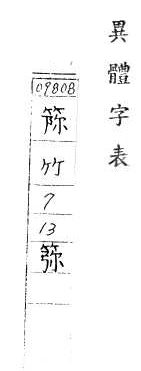 異體字表
09808
竹
7
13